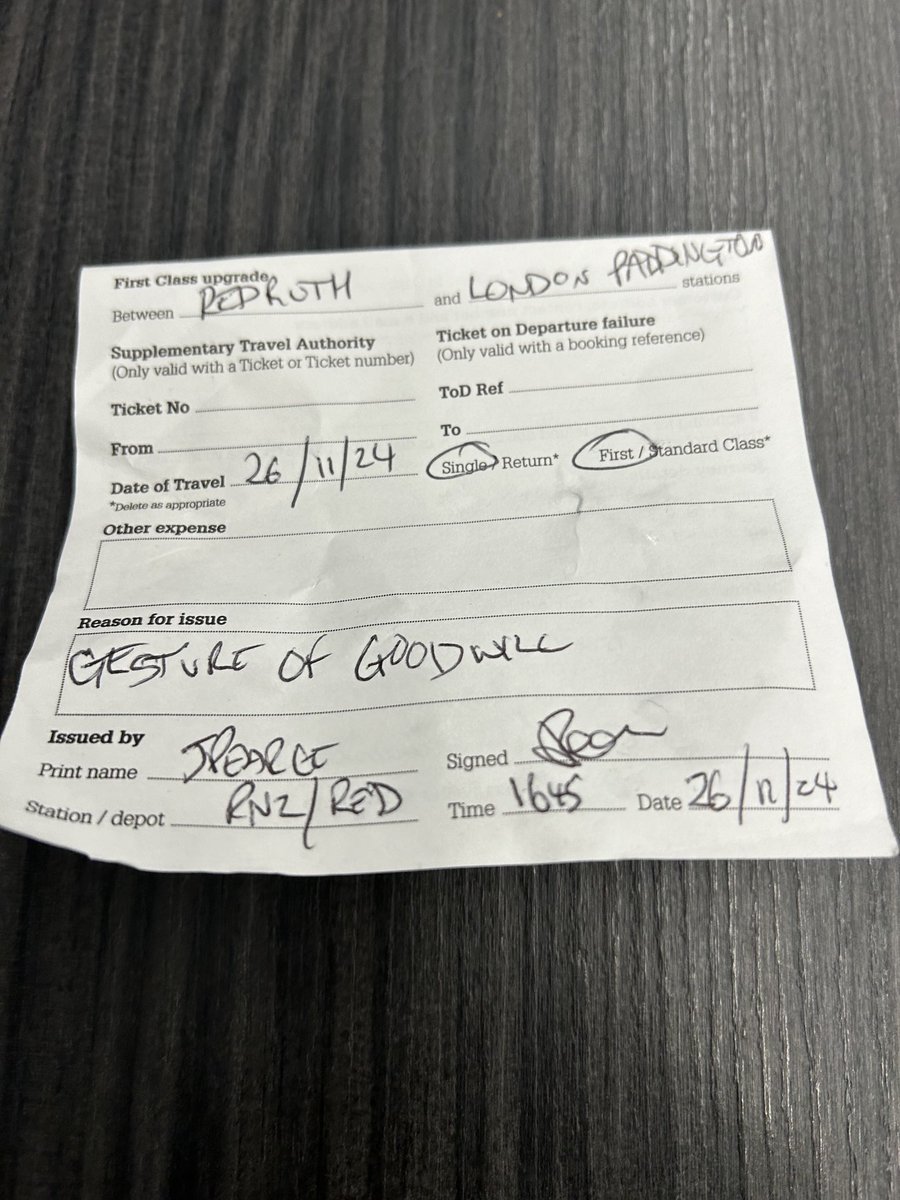 First Class upgrade
Between REDRUTH and LONDON PADDINGTON stations
Supplementary Travel Authority
(Only valid with a Ticket or Ticket number)
Ticket on Departure failure
(Only valid with a booking reference)
Ticket No
ToD Ref
From
To
Date of Travel 26/11/24
Single / Return*
First / Standard Class*
*Delete as appropriate
Other expense
Reason for issue
GESTURE OF GOODWILL
Issued by
Print name JPEARCE
Signed
Station / depot RNZ/RED
Time 1645 Date 26/11/24